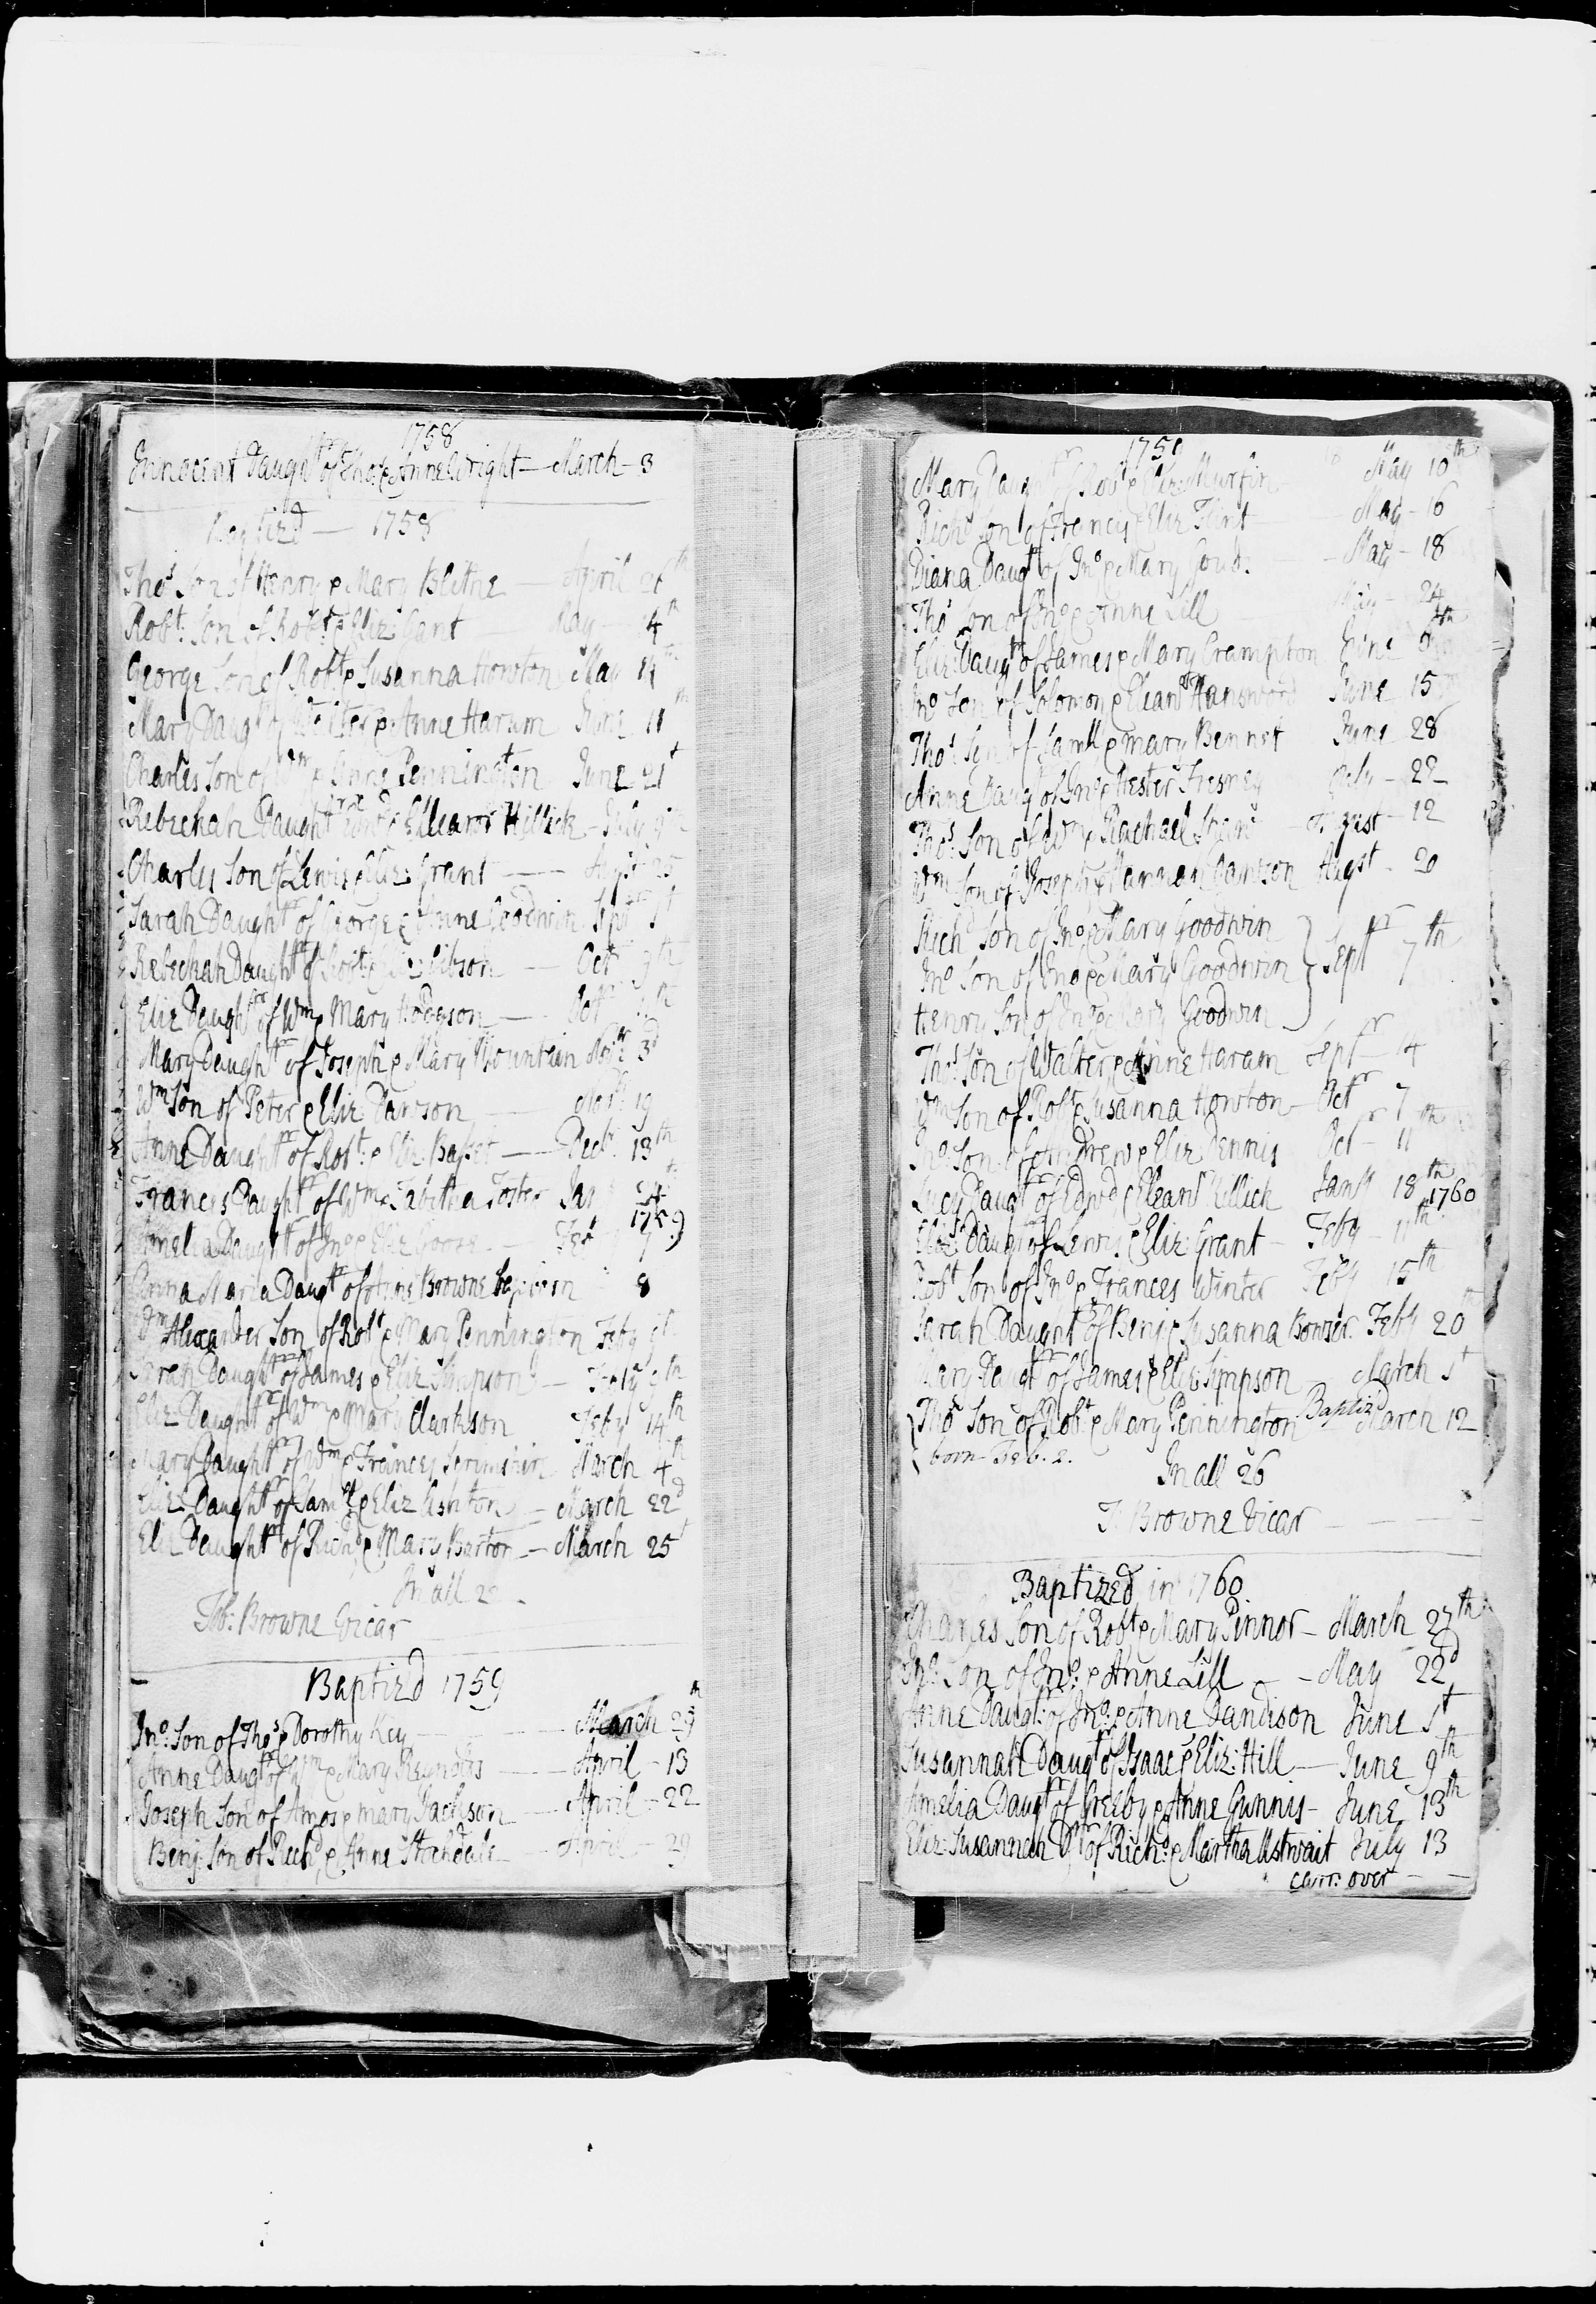 1758
Innocent Daughtr of Tho: & Anne Wright — March - 3
Baptizd — 1758
Thos Son of Henry & Mary Blithe — April 26th
Robt: Son of Robt: & Eliz: Gant — May 4th
George Son of Robt & Susanna Howton May 14th
Mary Daugtr of Walter & Anne Haram June 11th
Charles Son of Wm & Anne Pennington June 21st
Rebeckah Daughtr of & Elleanr Hillick - July 9th
Charles Son of Lewis & Eliz: Grant — 25
Sarah Daughtr of George & Anne Goodwin Septr 1st
Rebeckah Daughtr of Robt & Gibson — Octr 9th
Eliz Daughtr of Wm & Mary Hodgson — Octr
Mary Daughtr of Joseph & Mary Mountain Novr 3d
Wm Son of Peter & Eliz Dawson — Novr 19
Anne Daughtr of Robt: & Eliz: Basset — Decr 13th
Frances Daughtr of Wm & Tabitha Foster Jan
1759
Amelia Daughtr of Jno & Eliz Goose — Feb 7
Anna Maria Daugtr of Anne Browne 8
Wm Alexander Son of Robt & Mary Pennington Feby 9th
Sarah Daughtr of James & Eliz Simpson — Feby 9th
Eliz Daughtr of Wm & Mary Clarkson Feby 14th
Mary Daughtr of Wm & Frances March 4th
Eliz Daughtr of Saml & Eliz Ashton — March 22d
Eliz Daughtr of Richd & Mary Barton — March 25t
In all 22
Tob: Browne Vicar
Baptizd 1759
Jno: Son of Thos & Dorothy Key — March 29th
Anne Daugtr of Wm & Mary Reynolds — April - 13
Joseph Son of Amos & mary Jackson — April - 22
Benj: Son of Richd & Anne Stockdale — April - 29
1759
Mary Daughtr of Robt & Eliz: Murfin May 10th
Richd Son of Francis & Eliz Flint — May - 16
Diana Daugtr of Jno & Mary Goud. — May - 18
Thos Son of Jno & Anne Lill May - 24
Eliz: Daugtr of James & Mary Crampton June
Jno Son of Solomon & Eleanr Hansword June 15
Thos Son of Samll & mary Bennet June 28
Anne Daug of Jno & Hester Fresney July - 22
Thos: Son of Wm & Rachael August - 12
Wm Son of Joseph & Hannah Dawson Augst - 20
Richd Son of Jno & Mary Goodwin
Jno Son of Jno & Mary Goodwin } Septr 7th
Henry Son of Jno & Mary Goodwin
Thos Son of Walter & Anne Haram Septr - 14
Wm Son of Robt & Susanna Howton - Octr 7
Jno Son of Andrew & Eliz Dennis Octr - 11th
Lucy Daugtr of Edwd & Eleanr Killick Jany 18th 1760
Eliz: Daugtr of Lewis & Eliz: Grant - Feby 11th
Robt Son of Jno & Frances Winter Feby 15th
Sarah Daughtr of Benj & Susanna Bowser. Feby 20th
Mary Daugtr of James & Eliz Simpson — March 1st
Thos Son of Robt & Mary Pennington Baptizd March 12
born Feb. 2.
In all 26
T: Browne Vicar
Baptized in 1760
Charles Son of Robt & Mary Pinnor — March 27th
Jno: Son of Jno: & Anne Lill — May 22d
Anne Daugt: of Jno: & Anne Dandison June 1st
Susannah Daugtr of Isaac & Eliz: Hill — June 9th
Amelia Daugtr of Creeby & Anne Gunnis - June 13th
Eliz: Susannah Dr of Richd: & Martha Ustwait July 13
carr: over